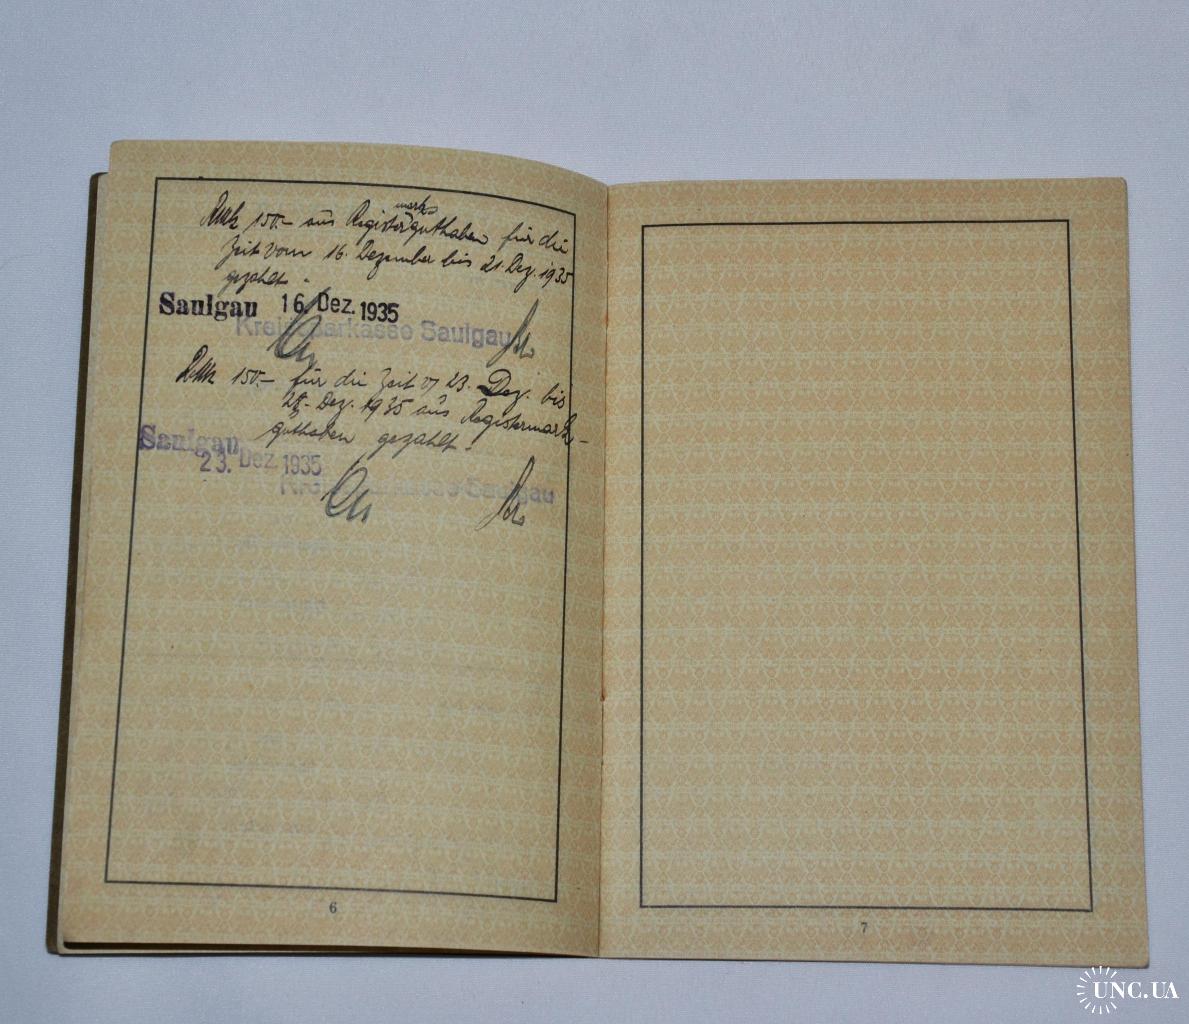 RMk 150.- aus Registermarkguthaben für die
Zeit vom 16. Dezember bis 21. Dez. 1935
gezahlt.
Saulgau 16. Dez. 1935
Kreissparkasse Saulgau
RMk 150.- für die Zeit v. 23. Dez. bis
Dez. 1935 aus Registermark-
guthaben gezahlt.
Saulgau
23. Dez. 1935
Kreissparkasse Saulgau
6
7
UNC.UA